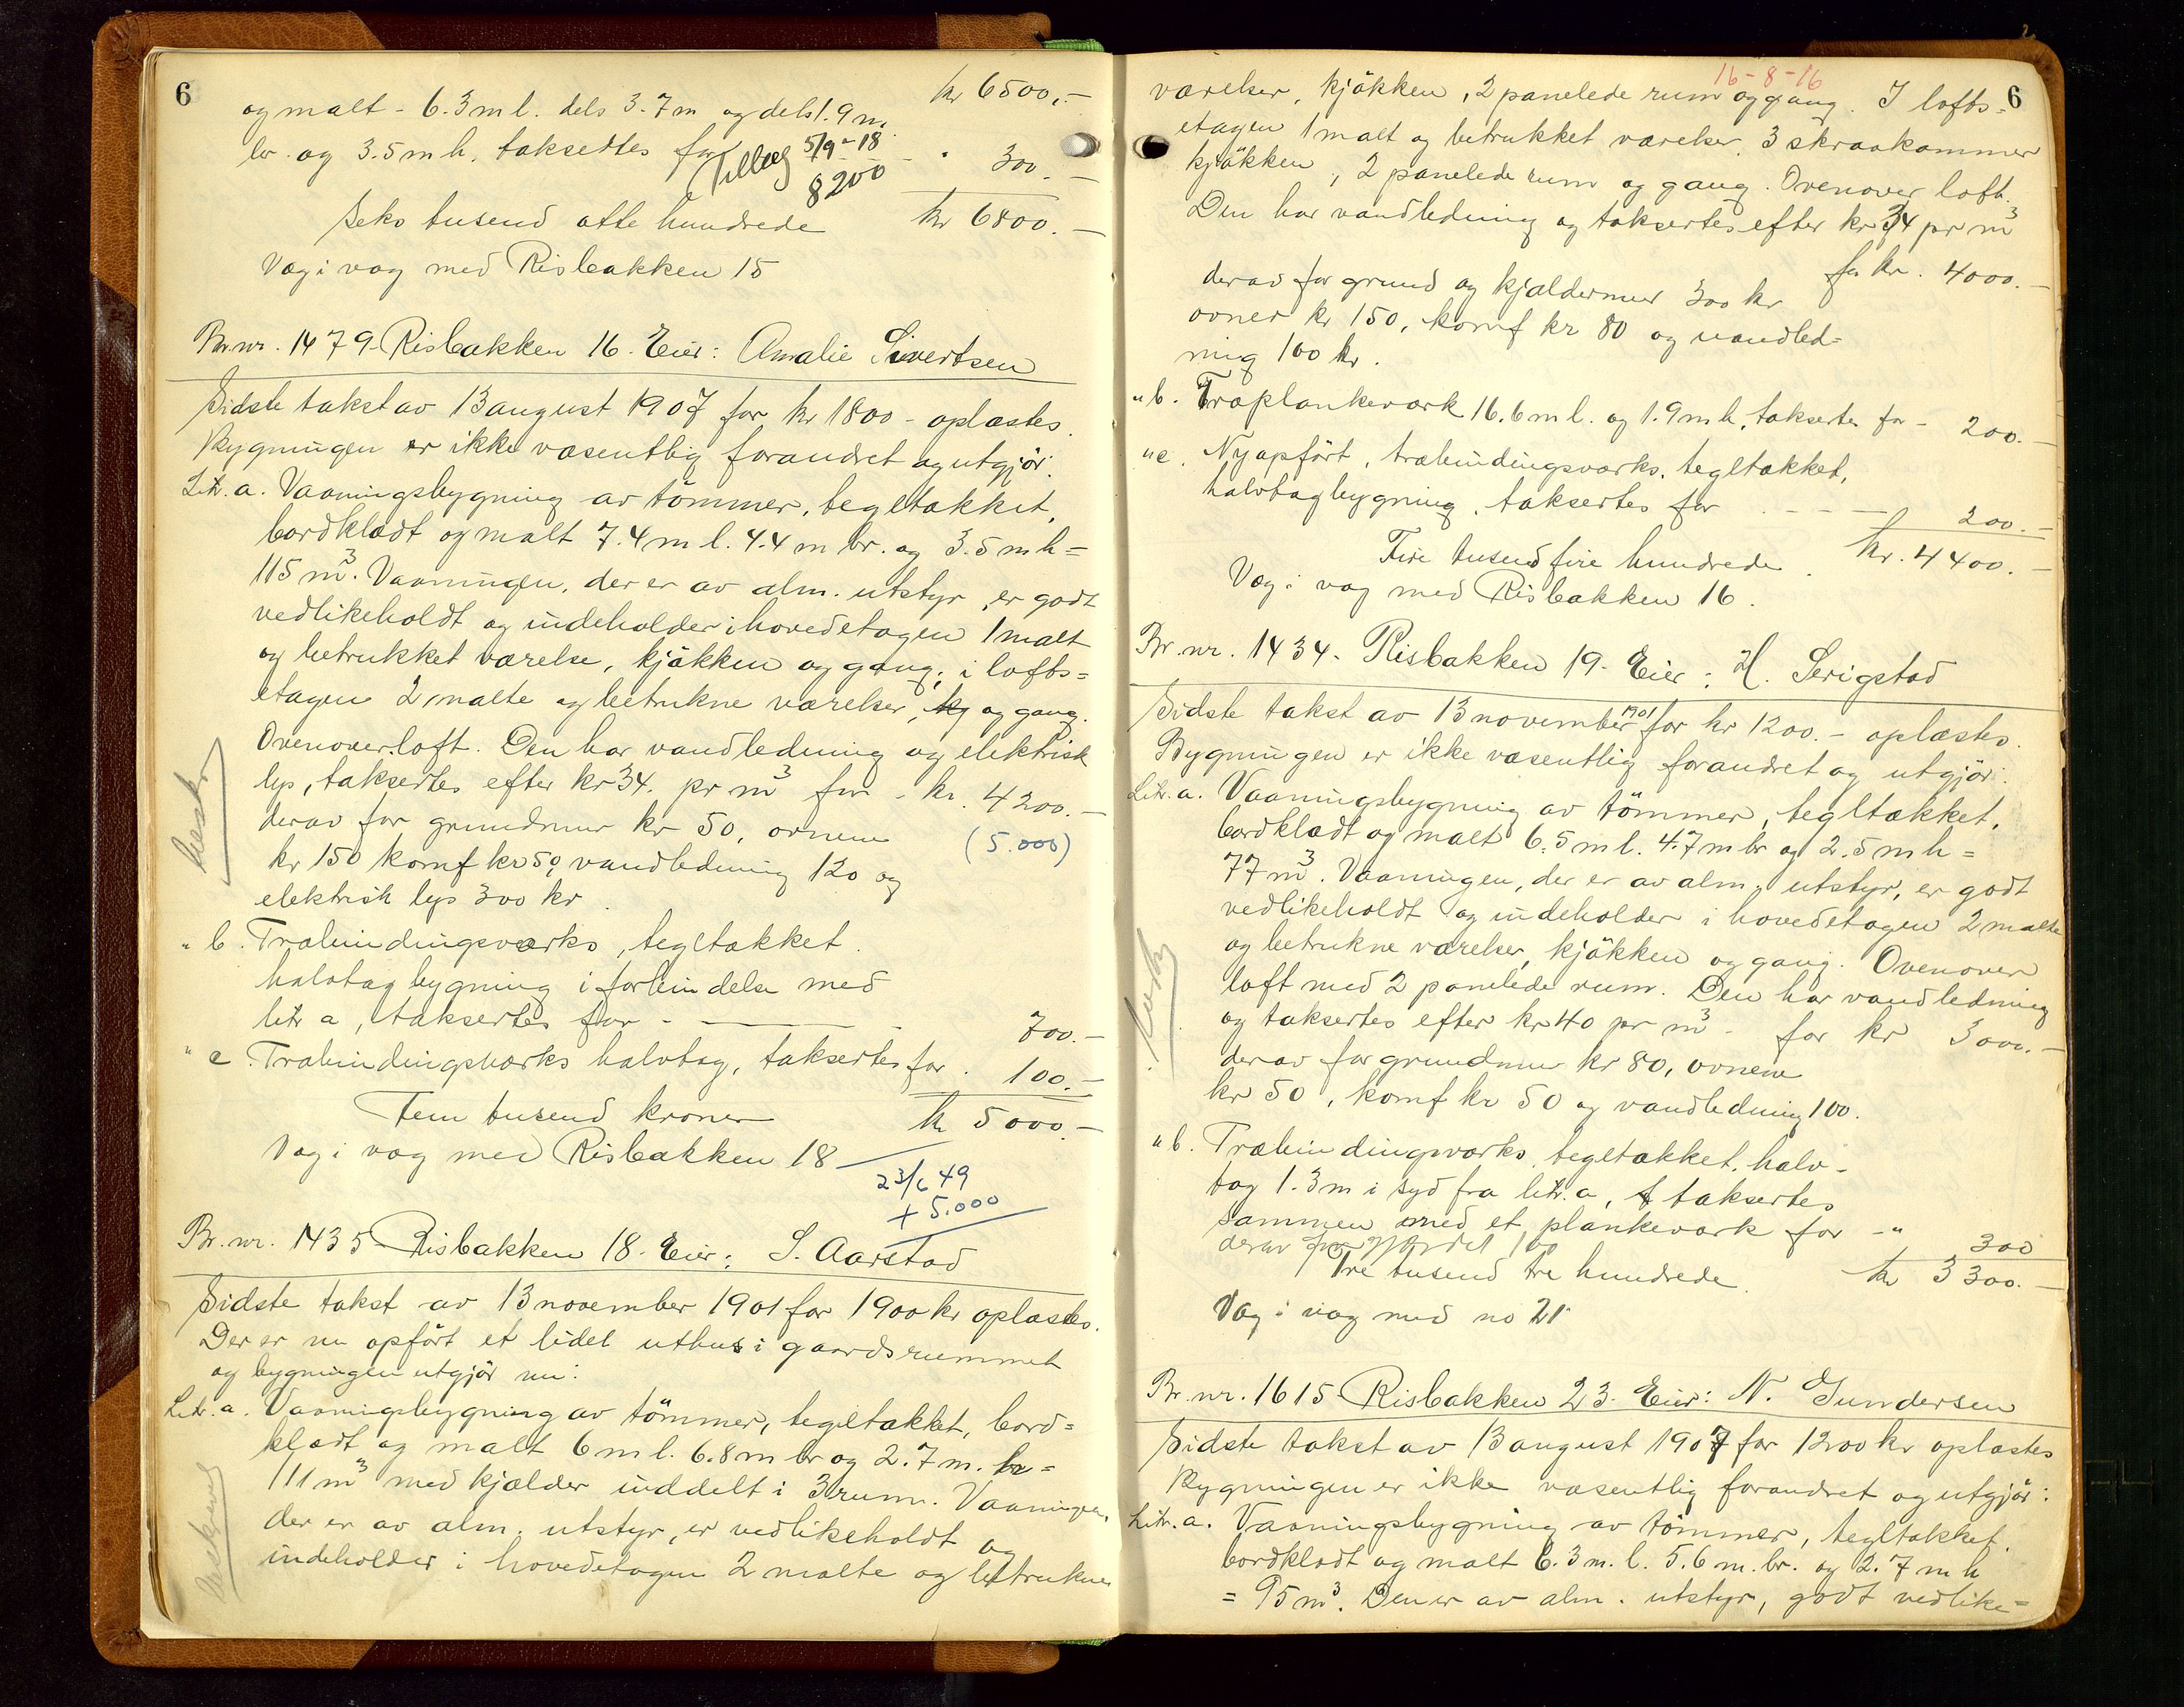 6
kr 6500,-
og malt - 6.3 m l. dels 3.7 m og dels 1.9 m.
br. og 3.5 m h. taksertes for - - " 300.-
Tillæg 5/9-18
8200
Seks tusend otte hundrede kr 6800.-
Væg i væg med Risbakken 15
Br. nr. 1479 Risbakken 16. Eier: Amalie Sivertsen
Sidste takst av 13 august 1907 for kr 1800 - oplæstes.
Bygningen er ikke væsentlig forandret og utgjör:
Litr. a. Vaaningsbygning av tömmer, tegltækket,
bordklædt og malt 7.4 m l. 4.4 m br. og 3.5 m h =
115 m³. Vaaningen, der er av alm. utstyr, er godt
vedlikeholdt og indeholder i hovedetagen 1 malt
og betrukket værelse, kjökken og gang; i lofts=
etagen 2 malte og betrukne værelser, kj og gang.
Ovenover loft. Den har vandledning og elektrisk
lys, taksertes efter kr 34. pr m³ for - kr. 4200.-
derav for grundmur kr 50, ovnene (5.000)
kr 150 komf kr 50, vandledning 120 og
elektrisk lys 300 kr.
" b. Træbindingsværks, tegltækket.
halvtagbygning i forbindelse med
litr a, taksertes for - - 700.-
" c. Træbindingsværks halvtag, taksertes for. 100.-
Fem tusend kroner kr 5000.-
Væg i væg med Risbakken 18
23/6 49
+ 5.000
Br. nr. 1435 Risbakken 18. Eier: S. Aarstad
Sidste takst av 13 november 1901 for 1900 kr oplæstes.
Der er nu opfört et lidet uthus i gaardsrummet
og bygningen utgjör nu:
Litr. a. Vaaningsbygning av tömmer, tegltækket, bord=
klædt og malt 6 m l. 6.8 m br og 2.7 m. h =
111 m³ med kjælder inddelt i 3 rum. Vaaningen,
der er av alm. utstyr, er vedlikeholdt og
indeholder i hovedetagen 2 malte og betrukne
16-8-16
6
værelser, kjökken, 2 panelede rum og gang. I lofts=
etagen 1 malt og betrukket værelser, 3 skraakammer
kjökken, 2 panelede rum og gang. Ovenover loft.
Den har vandledning og taksertes efter kr 34 pr m³
for kr. 4000.-
derav for grund og kjældermur 300 kr
ovner kr 150, komf kr 80 og vandled=
ning 100 kr.
" b. Træplankeværk 16.6 m l. og 1.9 m h, taksertes for - 200.-
" c. Nyopfört, træbindingsværks, tegltækket,
halvtagbygning, taksertes for - - - 200.-
Fire tusend fire hundrede. kr. 4400.-
Væg i væg med Risbakken 16.
Br. nr. 1434. Risbakken 19. Eier: H. Serigstad
Sidste takst av 13 november 1901 for kr 1200.- oplæstes.
Bygningen er ikke væsentlig forandret og utgjör:
Litr. a. Vaaningsbygning av tömmer, tegltækket,
bordklædt og malt 6.5 m l. 4.7 m br og 2.5 m h =
77 m³. Vaaningen, der er av alm. utstyr, er godt
vedlikeholdt og indeholder i hovedetagen 2 malte
og betrukne værelser, kjökken og gang. Ovenover
loft med 2 panelede rum. Den har vandledning
og taksertes efter kr 40 pr m³ - for kr 3000.-
derav for grundmur kr 80, ovnene
kr 50, komf kr 50 og vandledning 100.
" b. Træbindingsværks, tegltækket, halv-
tag 1.3 m i syd fra litr. a, taksertes
sammen med et plankeværk for - " 300
derav for 100
Tre tusend tre hundrede kr 3300.-
Væg i væg med no 21
Br. nr. 1615 Risbakken 23. Eier: N. Gundersen
Sidste takst av 13 august 1907 for 1200 kr oplæstes
Bygningen er ikke væsentlig forandret og utgjör:
Litr. a. Vaaningsbygning av tömmer, tegltækket,
bordklædt og malt 6.3 m. l. 5.6 m. br. og 2.7 m h
= 95 m³. Den er av alm. utstyr, godt vedlike=